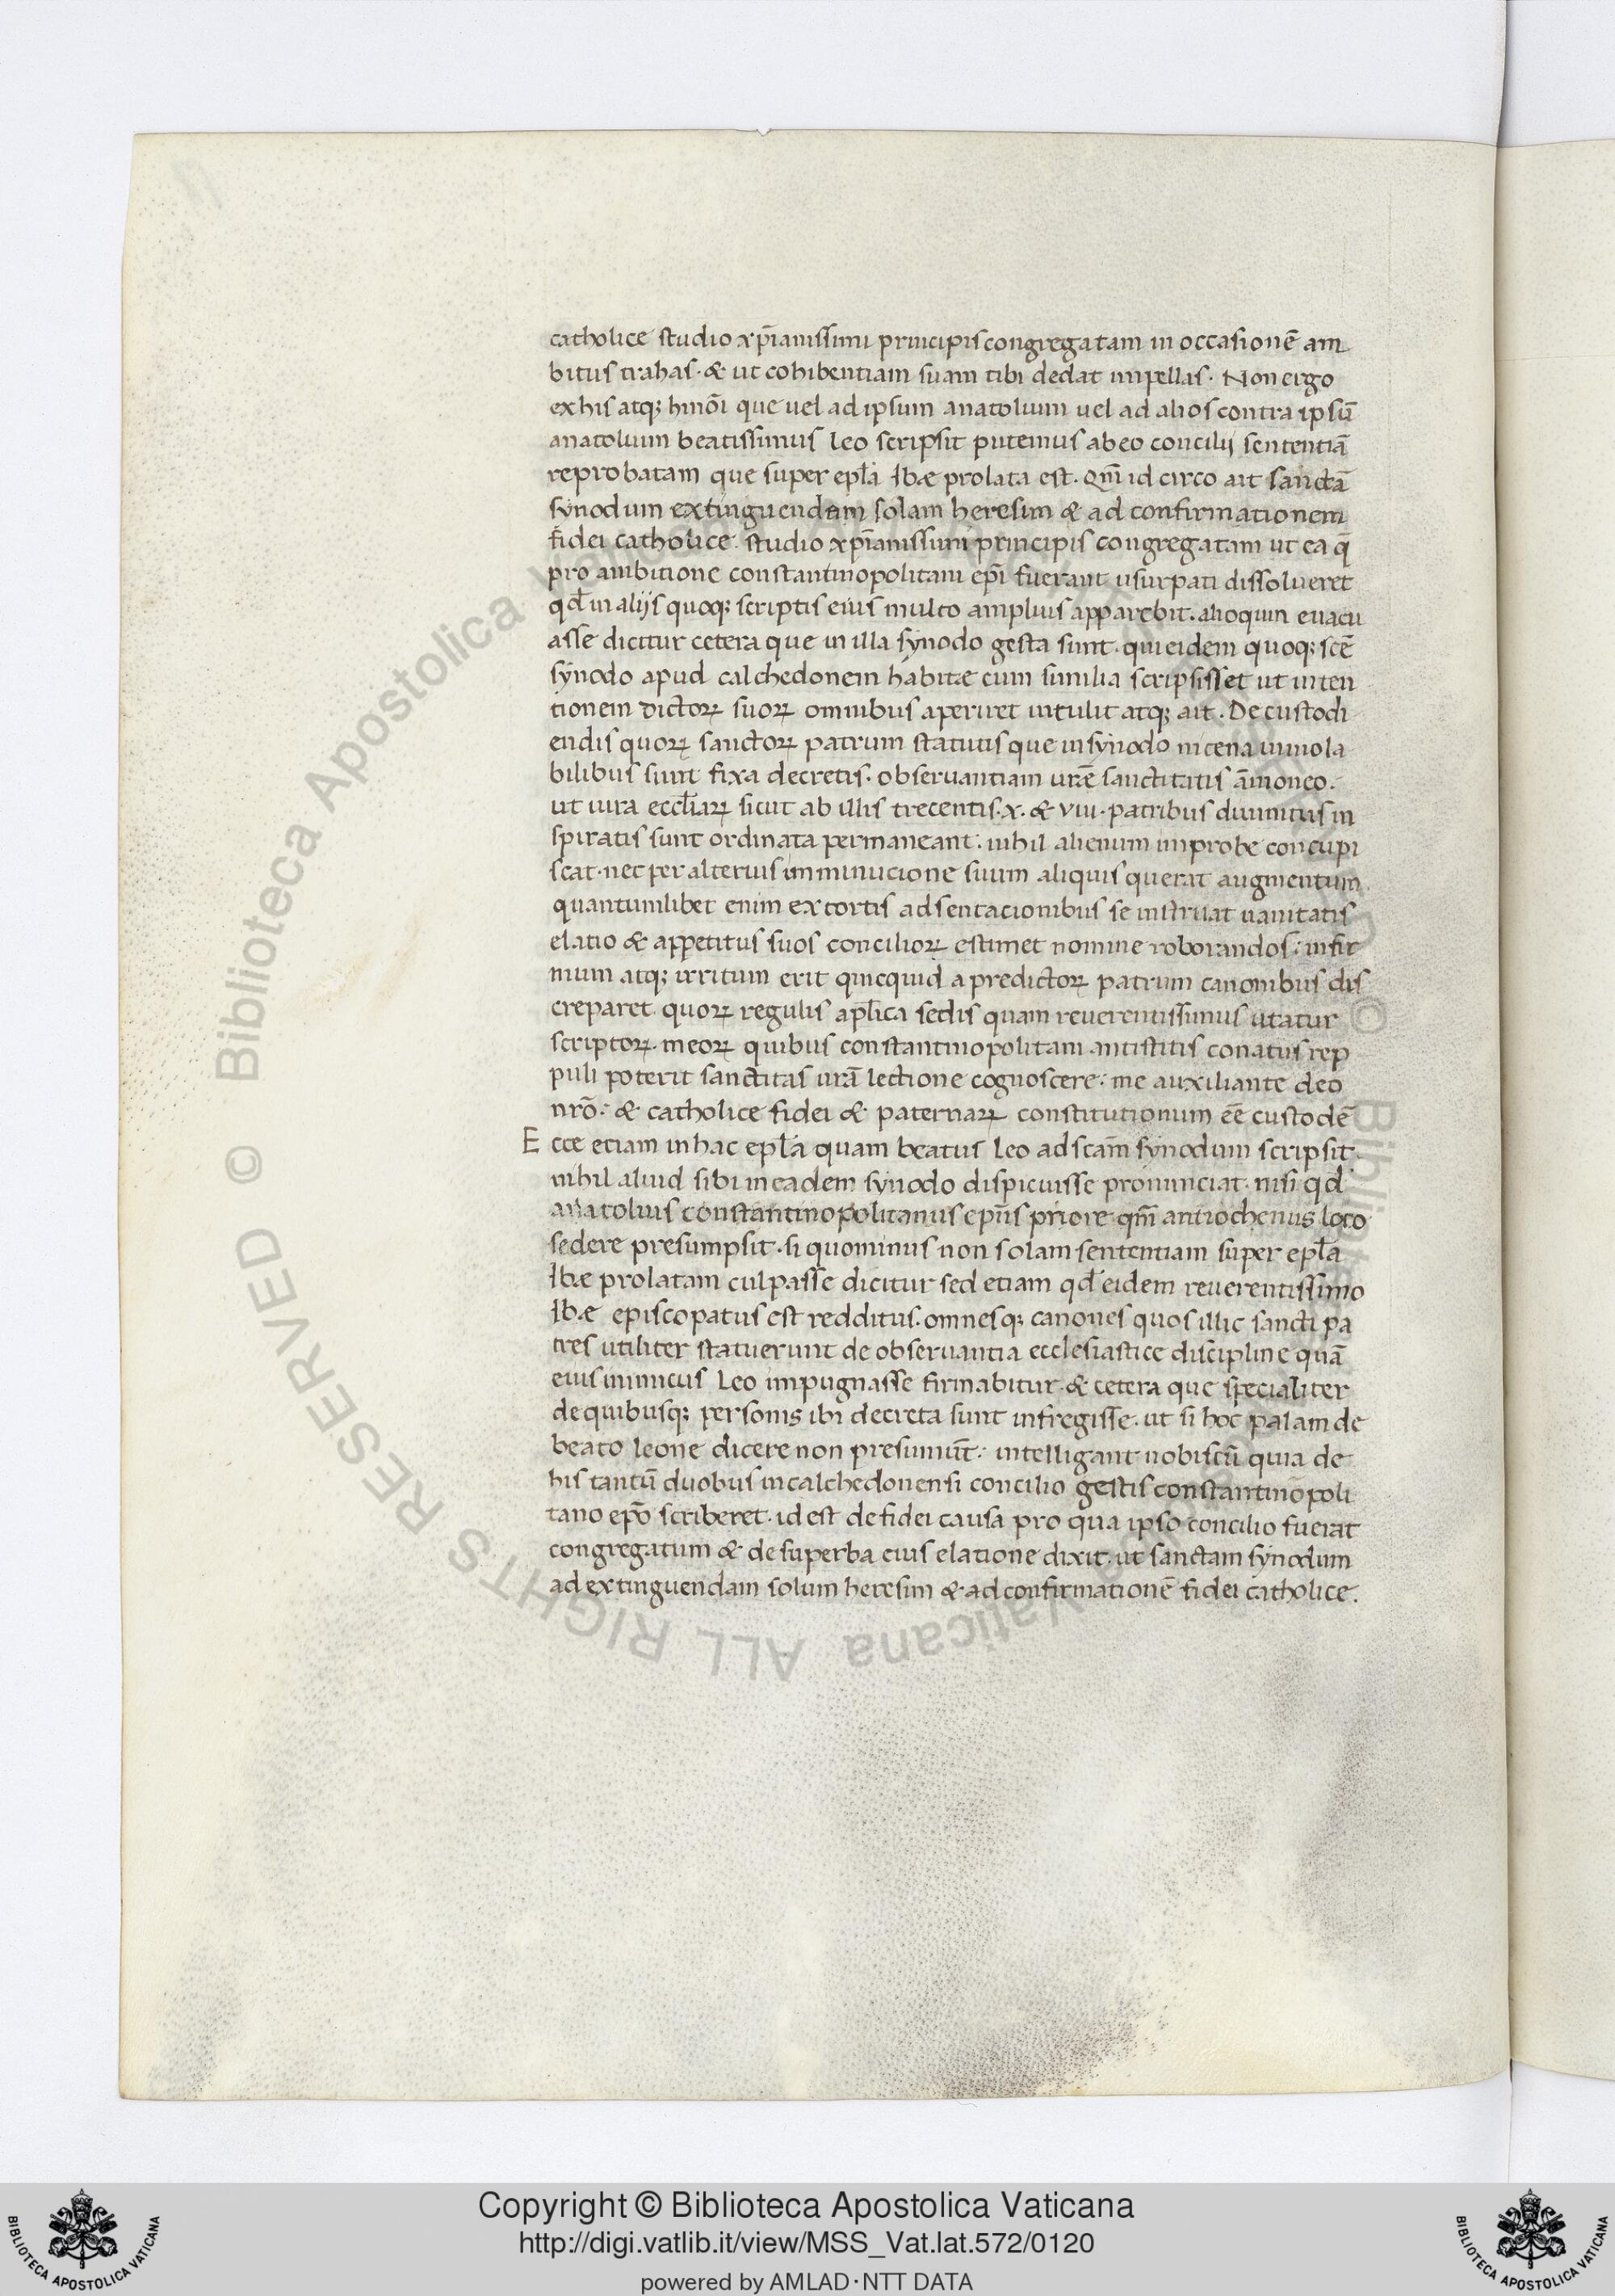 catholice studio xp̄ianissimi principis congregatam in occasionē am
bitus trahas · & ut cohibentiam suam tibi dedat impellas · Non ergo
ex his atq; hmōi que uel ad ipsum anatolium uel ad alios contra ipsū
anatolium beatissimus leo scripsit putemus ab eo concilij sententiā
reprobatam que super epl̄a Ibæ prolata est · Qm̄ id circo ait sanctā
synodum extinguendam solam heresim & ad confirmationem
fidei catholice · studio xp̄ianissimi principis congregatam ut ea q̄
pro ambitione constantinopolitani ep̄i fuerant usurpati dissolueret
qd̄ in alijs quoq; scriptis eius multo amplius apparebit · alioquin euacu
asse dicitur cetera que in illa synodo gesta sunt · qui eidem quoq; scē
synodo apud calchedonem habitæ cum similia scripsisset ut inten
tionem dictoꝝ suoꝝ omnibus aperiret intulit atq; ait · De custodi
endis quoꝝ sanctoꝝ patrum statutis que in synodo nicena inuiola
bilibus sunt fixa decretis · obseruantiam ur̄e sanctitatis āmoneo ·
ut iura eccl̄iaꝝ sicut ab illis trecentis · x · & viii · patribus diuinitus in
spiratis sunt ordinata permaneant : nihil alienum improbe concupi
scat · nec per alterius imminucione suum aliquis querat augmentum
quantumlibet enim extortis adsentacionibus se instruat uanitatis
elatio & appetitus suos concilioꝝ estimet nomine roborandos : infir
mum atq; irritum erit quicquid a predictoꝝ patrum canonibus dis
creparet · quoꝝ regulis apl̄ica sedis quam reuerentissimus utatur
scriptoꝝ · meoꝝ quibus constantinopolitani antistitis conatus rep
puli poterit sanctitas ur̄a lectione cognoscere : me auxiliante deo
nr̄o : & catholice fidei & paternaꝝ constitutionum eē custodē
Ecce etiam in hac epl̄a quam beatus leo ad scam̄ synodum scripsit ·
nihil aliud sibi in eadem synodo dispicuisse pronunciat · nisi qd̄
anatolius constantinopolitanus ep̄us priore qm̄ antiochenus loco
sedere presumpsit · si quominus non solam sententiam super epl̄a
Ibæ prolatam culpasse dicitur sed etiam qd̄ eidem reuerentissimo
Ibæ episcopatus est redditus · omnesq; canones quos illic sancti pa
tres utiliter statuerunt de obseruantia ecclesiastice discipline quā
eius inimicus leo impugnasse firmabitur · & cetera que specialiter
de quibusq; personis ibi decreta sunt infregisse · ut si hoc palam de
beato leone dicere non presumūt : intelligant nobiscū quia de
his tantū duobus in calchedonensi concilio gestis constantinopoli
tano ep̄o scriberet · id est de fidei causa pro qua ipso concilio fuerat
congregatum & de superba eius elatione dixit · ut sanctam synodum
ad extinguendam solum heresim & ad confirmationē fidei catholice ·
© Biblioteca Apostolica Vaticana ALL RIGHTS RESERVED
Copyright © Biblioteca Apostolica Vaticana
http://digi.vatlib.it/view/MSS_Vat.lat.572/0120
powered by AMLAD·NTT DATA
BIBLIOTECA APOSTOLICA VATICANA
BIBLIOTECA APOSTOLICA VATICANA